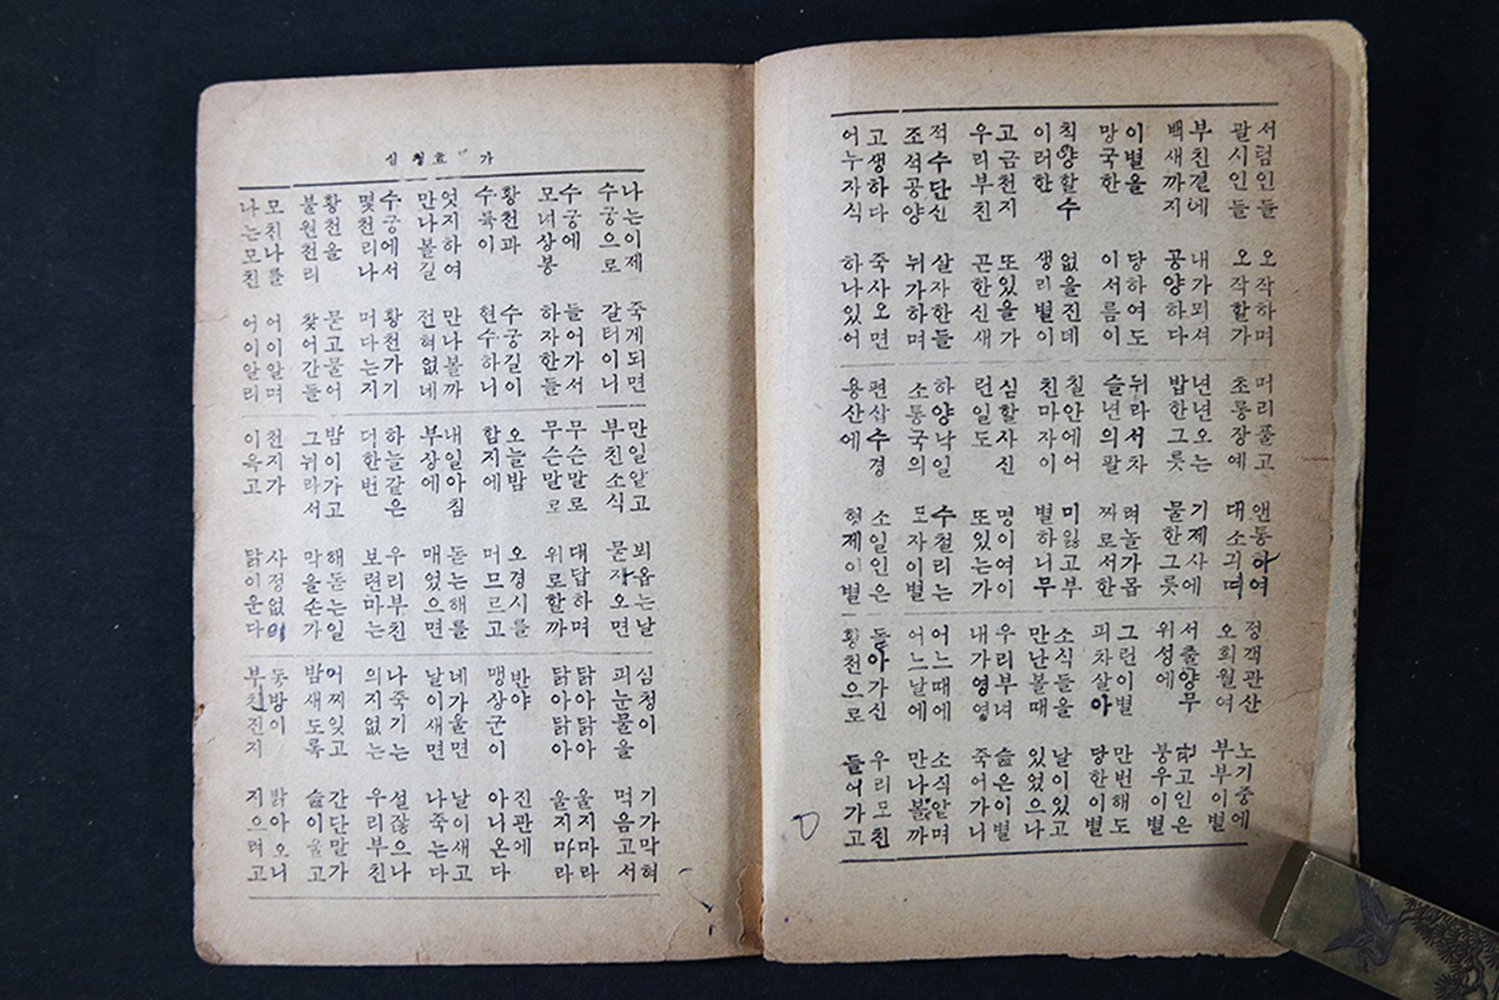 서럼인들 오작하며
괄시인들 오작할가
부친곁에 내가뫼셔
백새까지 공양하다
이별을 당하여도
망국한 이서름이
칙양할수 없을진데
이러한 생리별이
고금천지 또있을가
우리부친 곤한신새
적수단신 살자한들
조석공양 뉘가하며
고생하다 죽사오면
어누자식 하나있어
머리풀고 앤통하여
초롱장예 대소긔며
년년오는 기제사에
밥한그릇 물한그릇
뉘라서차 려놀가몹
슬년의팔 짜로서한
칠안에어 미잃고부
친마자이 별하니무
심할사신 명이여이
런일도 또있는가
하양낙일 수철리는
소통국의 모자이별
편삽수경 소일인은
용산에 형제이별
정객관산 노기중에
오희월여 부부이별
서출양무 고인은
위성에 붕우이별
그런이별 만번해도
피차살아 당한이별
소식들을 날이있고
만난볼때 있었으나
우리부녀 슲은이별
내가영영 죽어가니
어느때에 소식알며
어느날에 만나볼까
돌아가신 우리모친
황천으로 들어가고
심청효가
나는이제 죽게되면
수궁으로 갈터이니
수궁에 들어가서
모녀상봉 하자한들
황천과 수궁길이
수륙이 현수하니
엇지하여 만나볼까
만나볼길 전혀없네
수궁에서 황천가기
몇천리나 머다는지
황천을 묻고물어
불원천리 찾어간들
모친나를 어이알며
나는모친 어이알리
만일알고 뵈옵는날
부친소식 묻자오면
무슨말로 대답하며
무슨말로 위로할까
오늘밤 오경시를
함지에 머므르고
내일아침 돋는해를
부상에 매었으면
하늘같은 우리부친
더한번 보련마는
밤이가고 해돋는일
그뉘라서 막을손가
천지가 사정없이
이윽고 닭이운다
심청이 기가막혀
피눈물을 먹음고서
닭아닭아 울지마라
닭아닭아 울지마라
반야 진관에
맹상군이 아니온다
네가울면 날이새고
날이새면 나죽는다
나죽기는 설잖으나
의지없는 우리부친
어찌잊고 간단말가
밤새도록 슲이울고
동방이 밝아오니
부친진지 지으려고